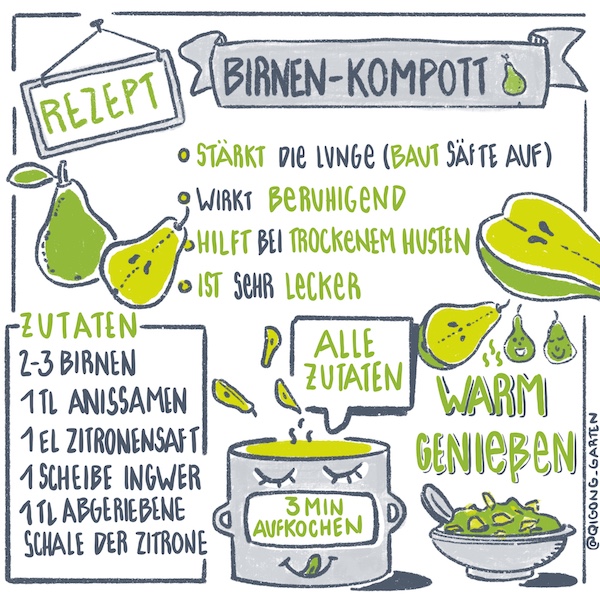 REZEPT
BIRNEN-KOMPOTT
• STÄRKT DIE LUNGE (BAUT SÄFTE AUF)
• WIRKT BERUHIGEND
• HILFT BEI TROCKENEM HUSTEN
• IST SEHR LECKER
ZUTATEN
2-3 BIRNEN
1 TL ANISSAMEN
1 EL ZITRONENSAFT
1 SCHEIBE INGWER
1 TL ABGERIEBENE
SCHALE DER ZITRONE
ALLE
ZUTATEN
3 MIN
AUFKOCHEN
WARM
GENIEßEN
@QIGONG_GARTEN